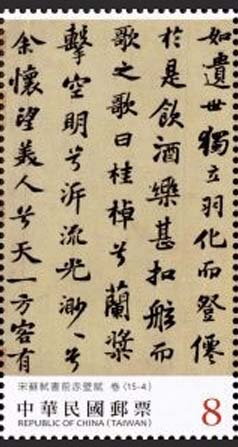 如遺世獨立羽化而登僊
於是飲酒樂甚扣舷而
歌之歌曰桂棹兮蘭槳
擊空明兮泝流光渺〻兮
余懷望美人兮天一方客有
宋蘇軾書前赤壁賦 卷 (15-4)
中華民國郵票
REPUBLIC OF CHINA (TAIWAN)
8